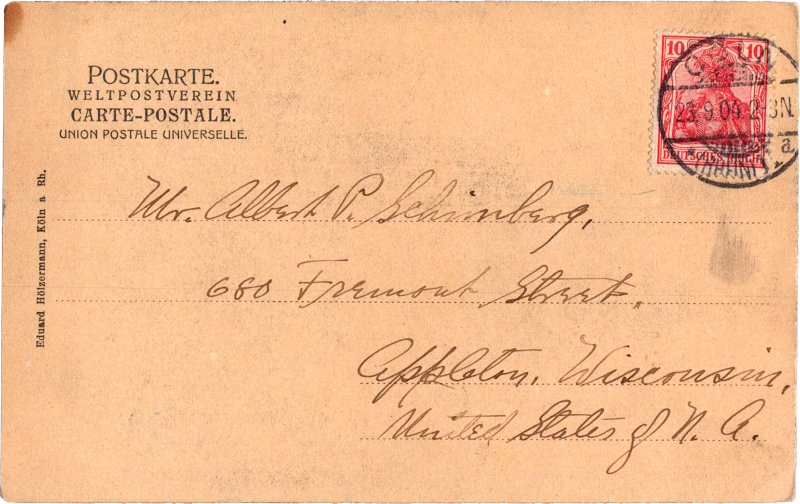 POSTKARTE.
WELTPOSTVEREIN
CARTE-POSTALE.
UNION POSTALE UNIVERSELLE.
10 10
23.9.04 2-3N.
a
DEUTSCHES REICH
(RHEIN)
Eduard Hölzermann, Köln a Rh.
Mr. Albert P.
680 Fremont Street.
Appleton, Wisconsin,
United States of N. A.